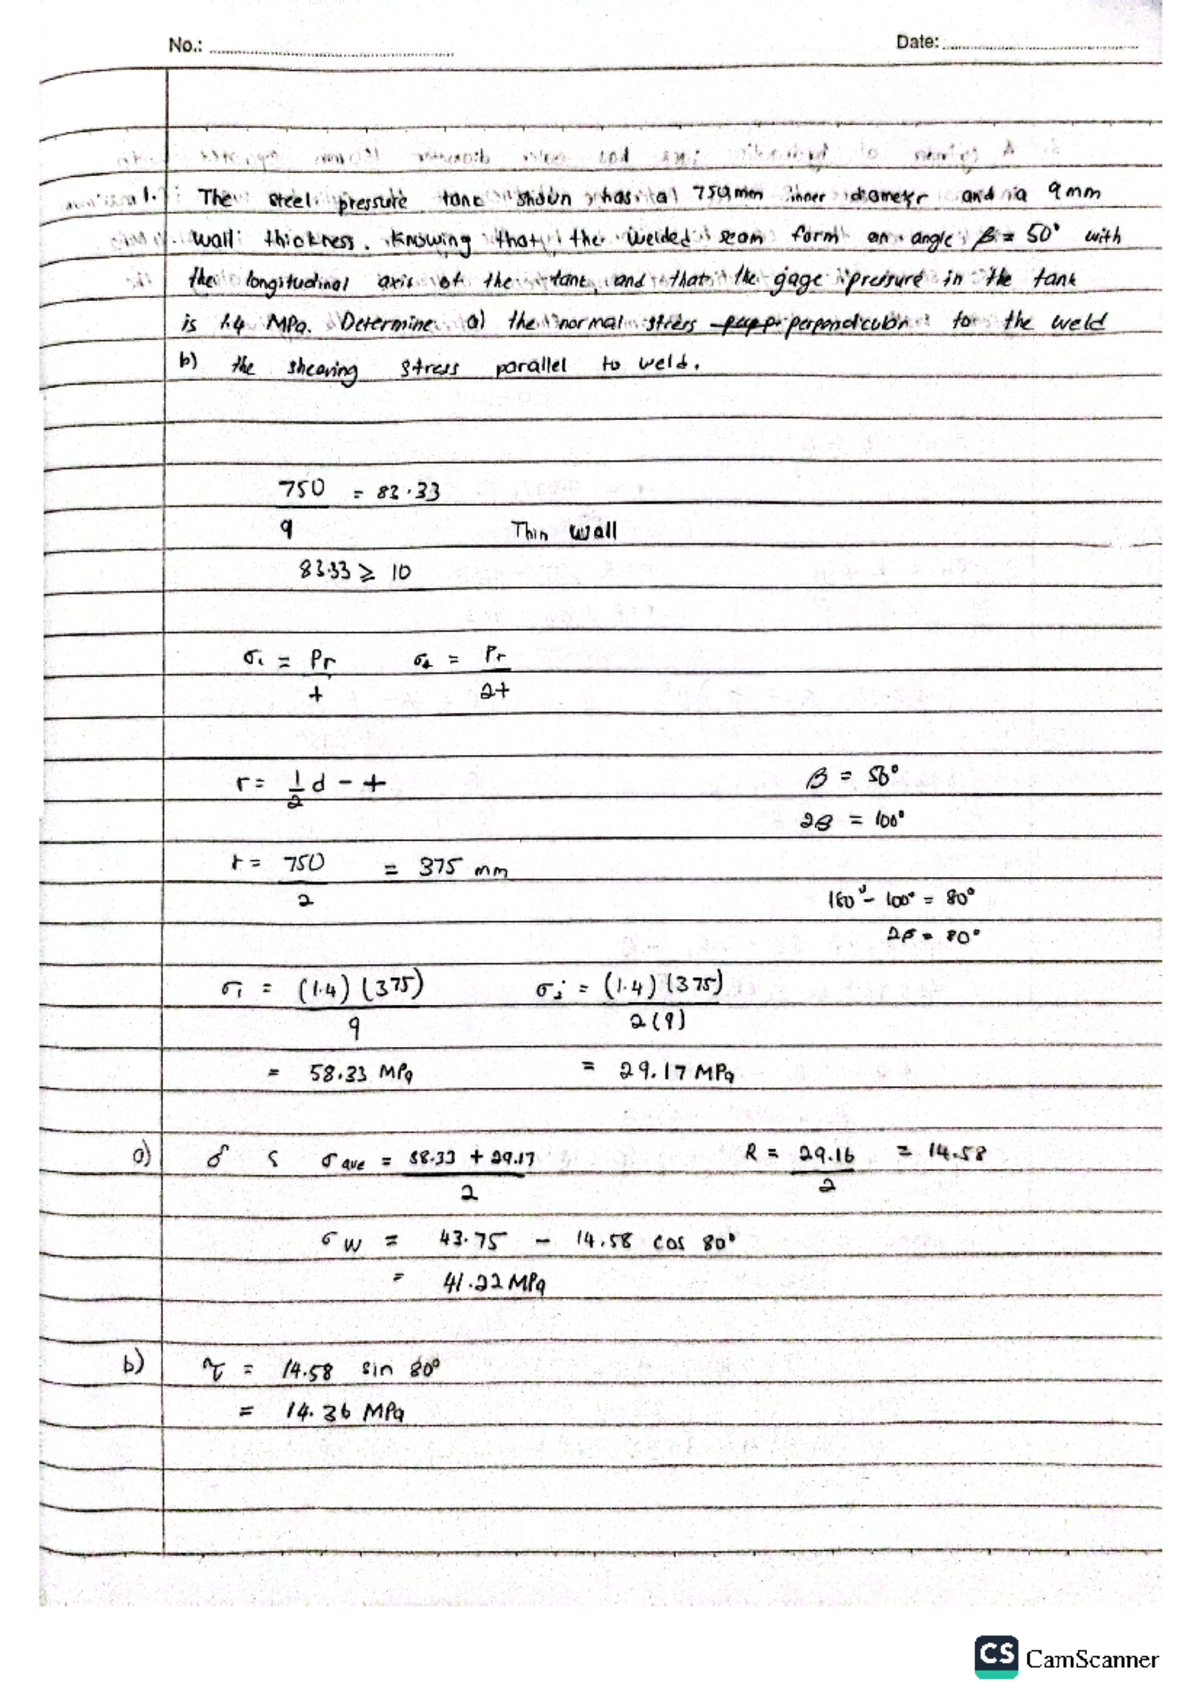 No.: Date:
1. The steel pressure tank shown has a 750 mm inner diameter and a 9 mm
wall thickness. Knowing that the welded seam form an angle β = 50° with
the longitudinal axis of the tank, and that the gage pressure in the tank
is 1.4 MPa. Determine a) the normal stress perpendicular to the weld
b) the shearing stress parallel to weld.
750 = 83.33
9 Thin wall
83.33 ≥ 10
σ₁ = Pr σ₂ = Pr
t 2t
r = 1/2 d - t β = 50°
2β = 100°
r = 750 = 375 mm
2 180° - 100° = 80°
2β = 80°
σ₁ = (1.4)(375) σ₂ = (1.4)(375)
9 2(9)
= 58.33 MPa = 29.17 MPa
a) σ ave = 58.33 + 29.17 R = 29.16 = 14.58
2 2
σ w = 43.75 - 14.58 cos 80°
= 41.22 MPa
b) τ = 14.58 sin 80°
= 14.36 MPa
CS CamScanner